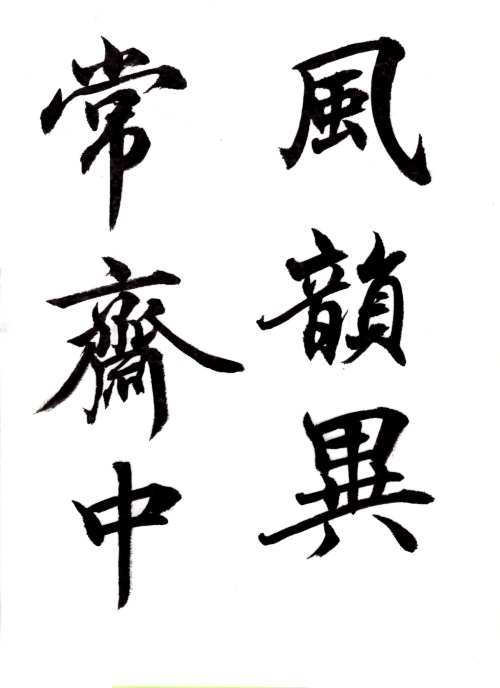 風韻異
常齋中